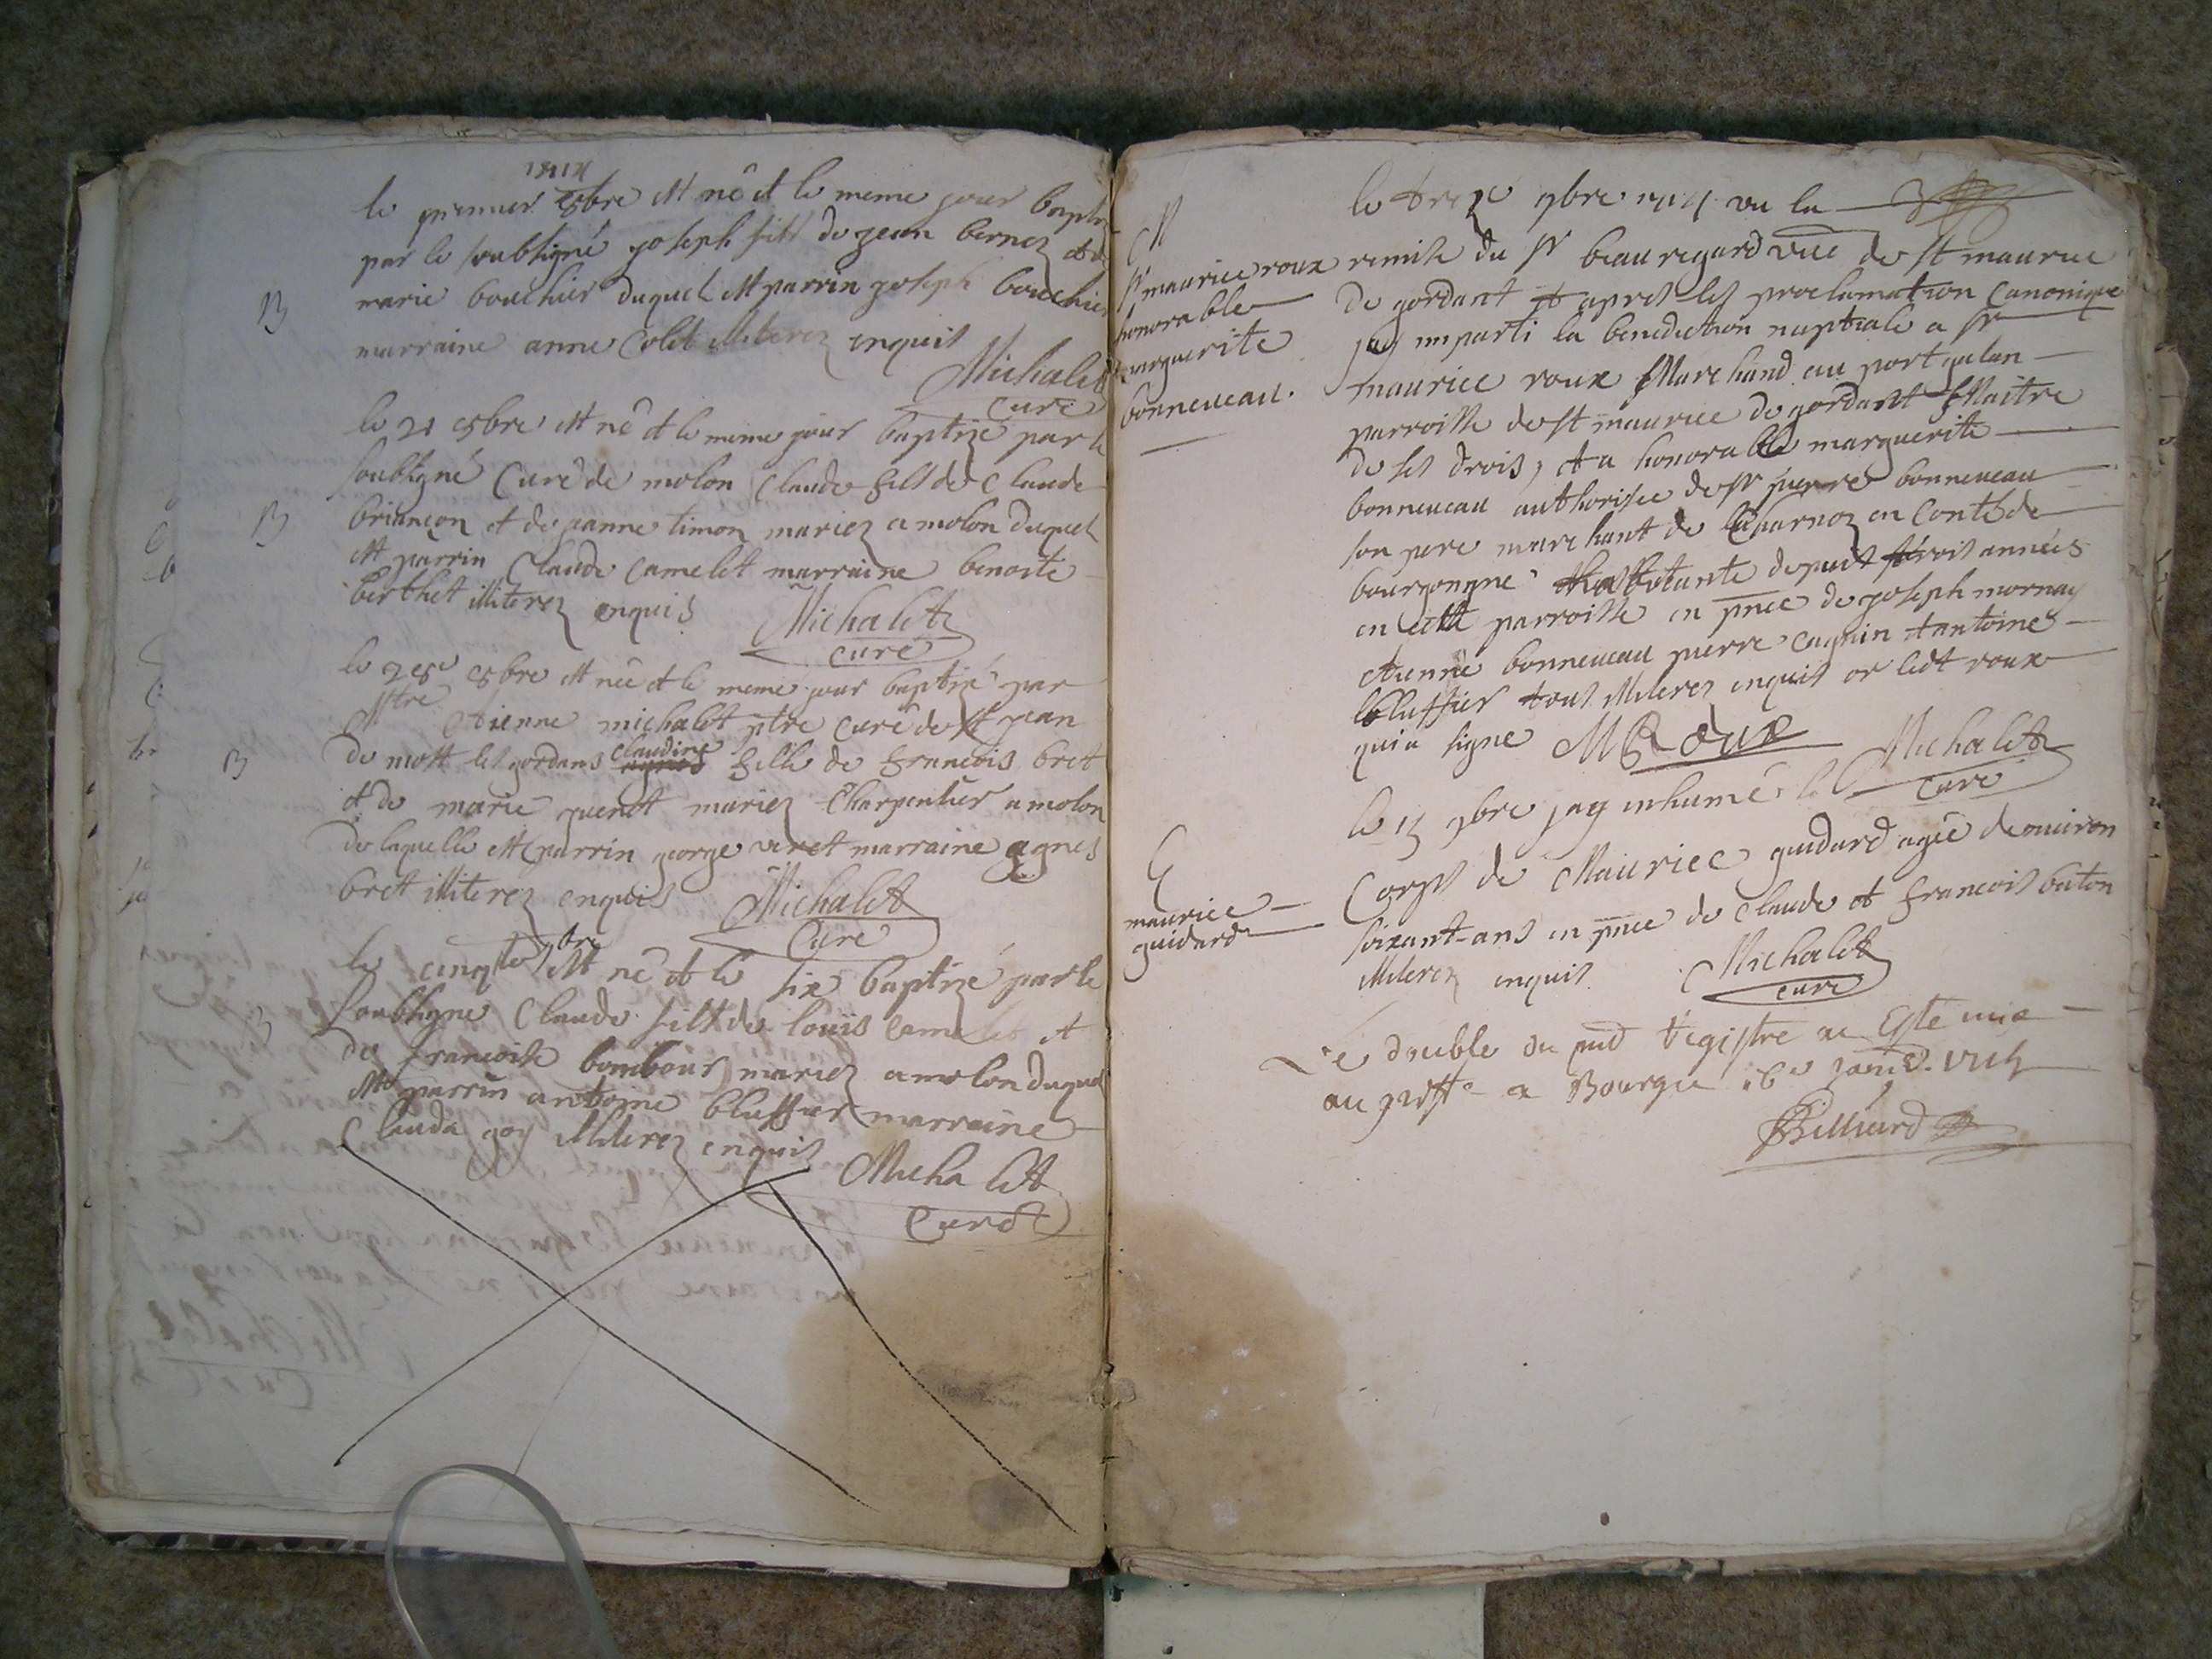 le premier 8bre est né et le meme jour baptiz
par le soubsigné joseph fils de jean bernoz et de
B
marie bouchier duquel est parrin joseph bouchier
marraine anne Colet illiterez enquis
Michalet
curé
le 21 8bre est né et le meme jour baptizé par le
soubsigné Curé de molon Claude fils de Claude
B
briançon et de janne timon mariez a molon duquel
est parrin Claude Camelet marraine benoite
berthet illiterez enquis
Michalet
curé
le 25e 8bre est née et le meme jour baptizé par
Mtre etienne michalet ptre curé de st jean
B
de most les gordans claudine agnes fille de francois bret
et de marie guenet mariez Charpentier a molon
de laquelle est parrin george viret marraine agnes
bret illiterez enquis
Michalet
Curé
le cinq est né et le six baptizé par le
B
soubsigné Claude fils de louïs camelet et
de francoise bombour mariez a molon duquel
est parrin antoine bluffier marraine
Clauda goy illiterez enquis
Michalet
Curé
le treize 9bre vu la
M
sr maurice roux
honorable
marguerite
bonneveau.
remise du sr beauregard vicᵉ de st maurice
de gordant et apres les proclamation Canonique
jay imparti la benediction nuptiale a sr
maurice roux Marchand au port galan
parroisse de st maurice de gordant Maitre
de ses drois, et a honorable marguerite
bonneveau authorisée de sr pierre bonneveau
son pere marchant de en Conté de
bourgongne habitante depuis trois années
en cette parroisse en pnce de joseph mornay
etienne bonneveau pierre cagnin et antoine
bluffier tous illiterez enquis or ledt roux
qui a signe
M Roux
Michalet
Curé
le 15 9bre jay inhumé le
E
maurice
guidard
Corps de Maurice guidard agée denviron
soixant ans en pnce de Claude et francois baton
illiterez enquis
Michalet
curé
Le double du pnt Registre a Esté mis
au greffe a Bourg ce
Billiard